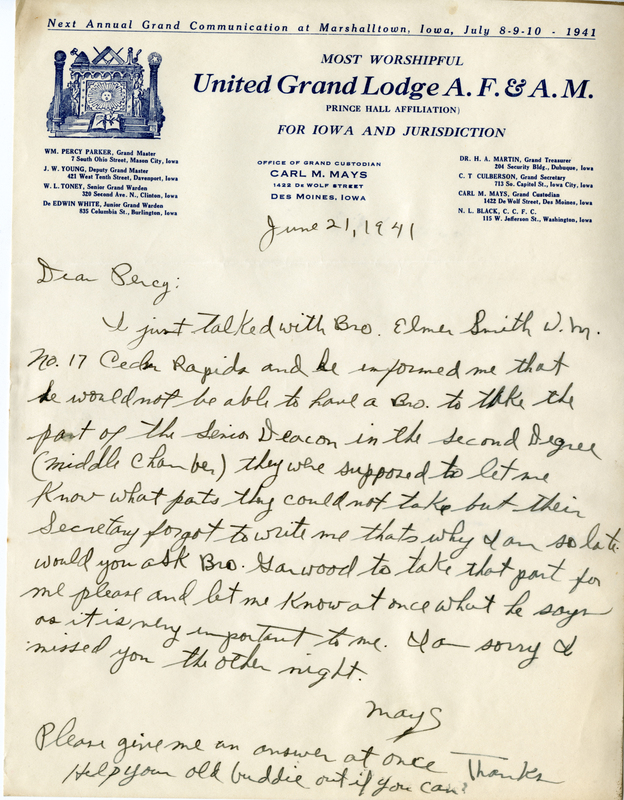 Next Annual Grand Communication at Marshalltown, Iowa, July 8-9-10 - 1941
MOST WORSHIPFUL
United Grand Lodge A. F. & A. M.
PRINCE HALL AFFILIATION)
FOR IOWA AND JURISDICTION
WM. PERCY PARKER, Grand Master
7 South Ohio Street, Mason City, Iowa
J. W. YOUNG, Deputy Grand Master
421 West Tenth Street, Davenport, Iowa
W. L. TONEY, Senior Grand Warden
320 Second Ave. N., Clinton, Iowa
De EDWIN WHITE, Junior Grand Warden
835 Columbia St., Burlington, Iowa
OFFICE OF GRAND CUSTODIAN
CARL M. MAYS
1422 DE WOLF STREET
DES MOINES, IOWA
DR. H. A. MARTIN, Grand Treasurer
204 Security Bldg., Dubuque, Iowa
C. T CULBERSON, Grand Secretary
713 So. Capitol St., Iowa City, Iowa
CARL M. MAYS, Grand Custodian
1422 De Wolf Street, Des Moines, Iowa
N. L. BLACK, C. C. F. C.
115 W. Jefferson St., Washington, Iowa
June 21, 1941
Dear Percy:
I just talked with Bro. Elmer Smith W. M.
No. 17 Cedar Rapids and he informed me that
he would not be able to have a Bro. to take the
part of the Senior Deacon in the second Degree
(middle Chamber) they were supposed to let me
Know what pats they could not take but their
Secretary forgot to write me thats why I am so late.
would you ask Bro. Garwood to take that part for
me please and let me Know at once what he says
as it is very important to me. I am sorry I
missed you the other night.
Mays
Please give me an answer at once Thanks
Help your old buddie out if you can?